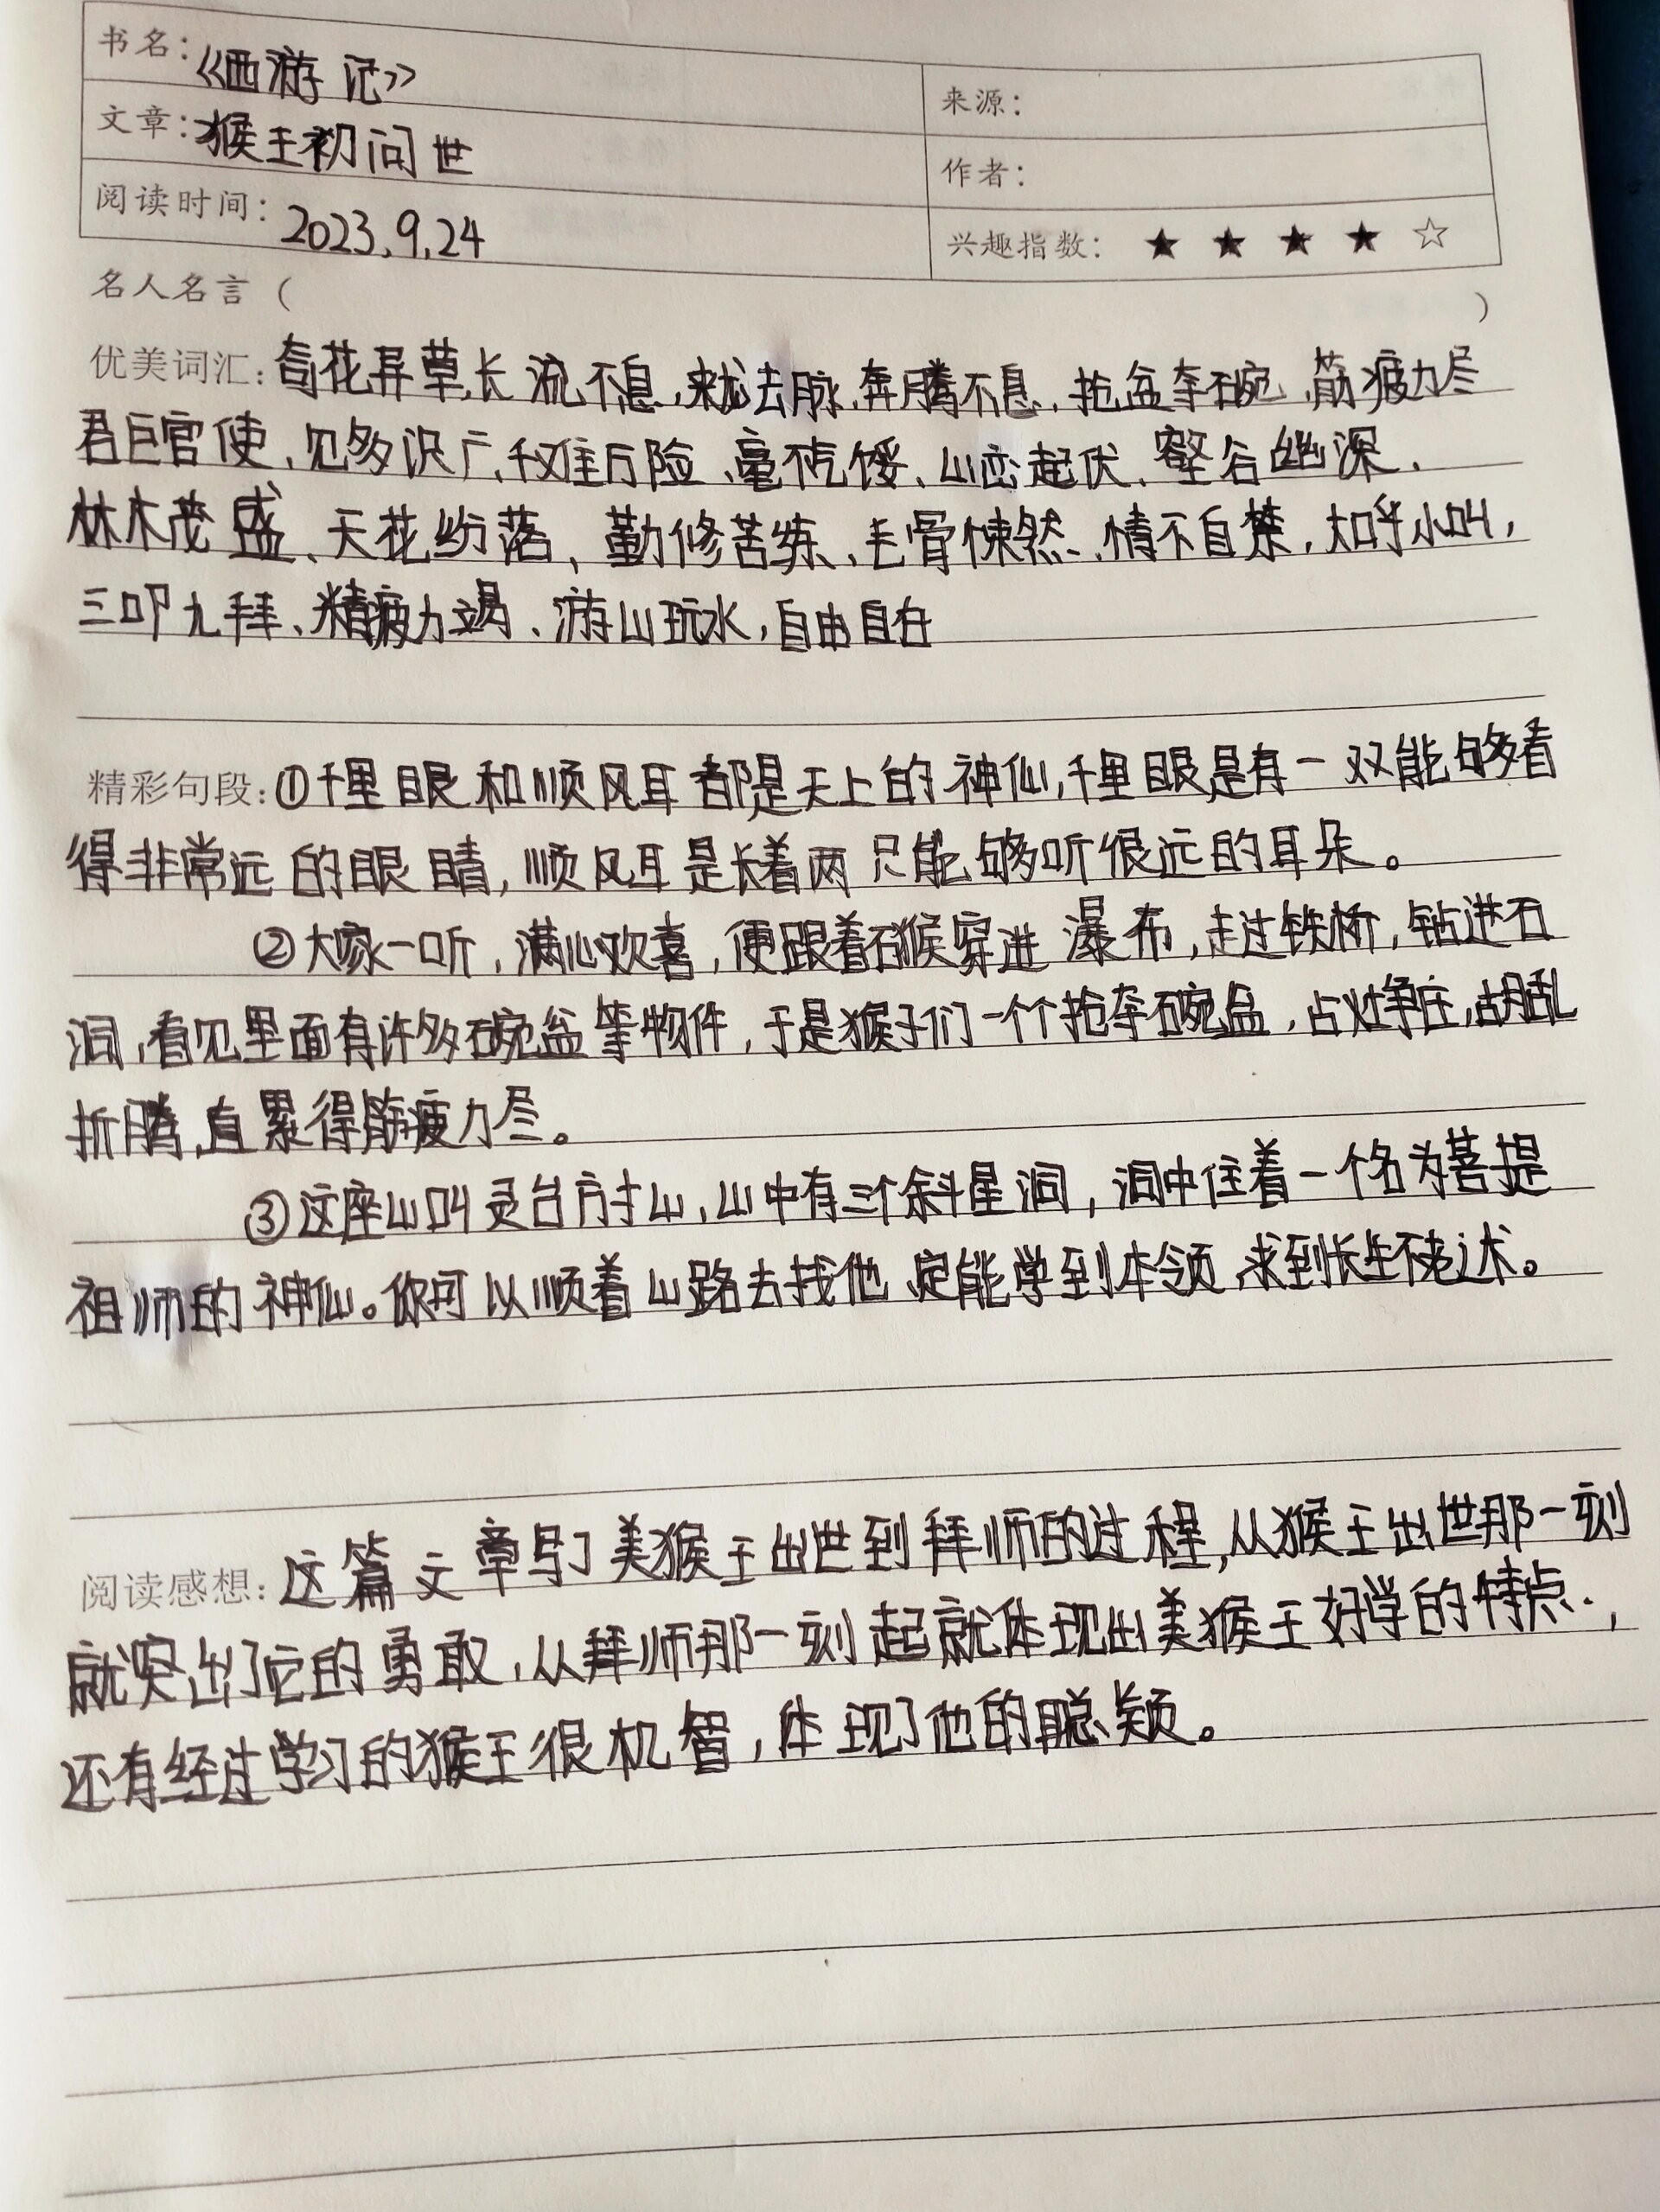 书名：《西游记》
来源：
文章：猴王初问世
作者：
阅读时间：2023.9.24
兴趣指数：★ ★ ★ ★ ☆
名人名言（ ）
优美词汇：奇花异草、长流不息、来龙去脉、奔腾不息、抢盆夺碗、筋疲力尽
君臣官使、见多识广、千难万险、毫不气馁、山峦起伏、壑谷幽深、
林木茂盛、天花纷落、勤修苦练、毛骨悚然、情不自禁，大呼小叫，
三叩九拜、精疲力竭、游山玩水，自由自在
精彩句段：①千里眼和顺风耳都是天上的神仙，千里眼是有一双能够看
得非常远的眼睛，顺风耳是长着两只能够听很远的耳朵。
②大家一听，满心欢喜，便跟着石猴穿进瀑布，走过铁桥，钻进石
洞，看见里面有许多碗盆等物件，于是猴子们一个个抢夺碗盆，占灶争庄，胡乱
折腾，直累得筋疲力尽。
③这座山叫灵台方寸山，山中有三个斜星洞，洞中住着一个名为菩提
祖师的神仙。你可以顺着山路去找他，定能学到本领，求到长生不老之术。
阅读感想：这篇文章写了美猴王出世到拜师的过程，从猴王出世那一刻
就突出了它的勇敢，从拜师那一刻起就体现出美猴王好学的特点，
还有经过学习的猴王很机智，体现了他的聪颖。